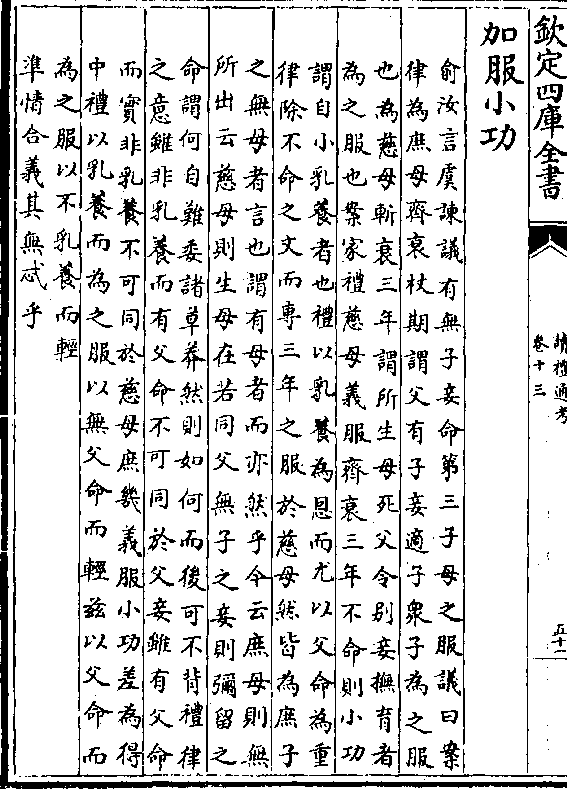 欽定四庫全書
讀禮通考
卷十三
五十二
加服小功
俞汝言虞諫議有無子妾命第三子母之服議曰案
律為庶母齊衰杖期謂父有子妾適子衆子為之服
也為慈母斬衰三年謂所生母死父令别妾撫育者
為之服也案家禮慈母義服齊衰三年不命則小功
謂自小乳養者也禮以乳養為恩而尤以父命為重
律除不命之文而專三年之服於慈母然皆為庶子
之無母者言也謂有母者而亦然乎今云庶母則無
所出云慈母則生母在若同父無子之妾則彌留之
命謂何自難委諸草莽然則如何而後可不背禮律
之意雖非乳養而有父命不可同於父妾雖有父命
而實非乳養不可同於慈母庶幾義服小功差為得
中禮以乳養而為之服以無父命而輕兹以父命而
為之服以不乳養而輕
準情合義其無忒乎